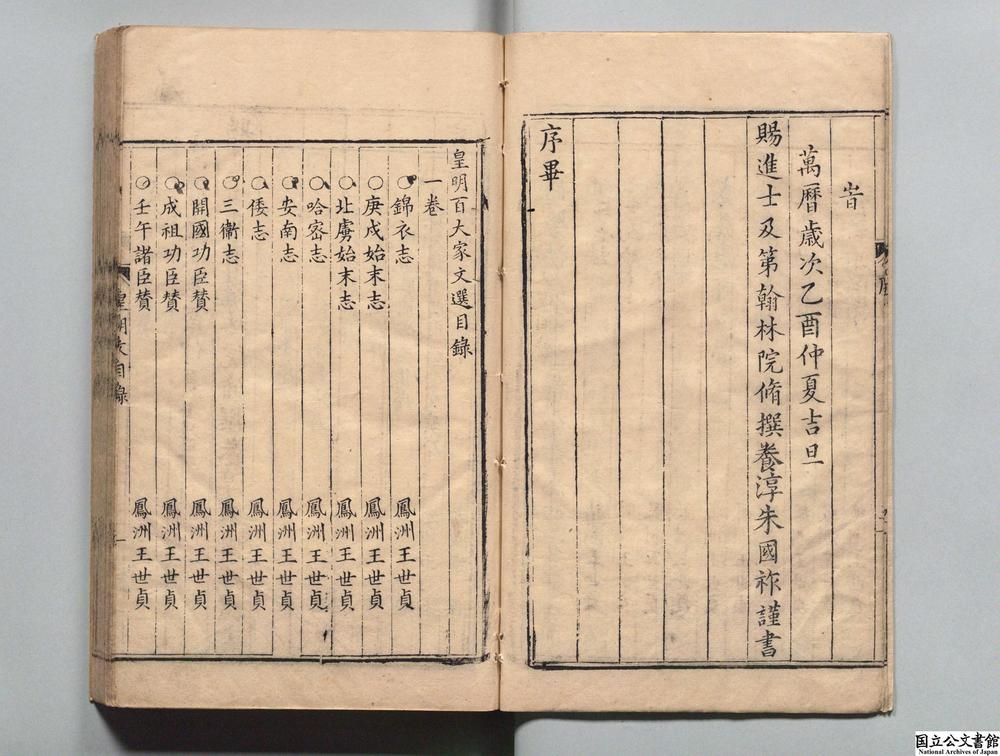 旹
萬曆歲次乙酉仲夏吉旦
賜進士及第翰林院脩撰養淳朱國祚謹書
序畢
皇明百大家文選目錄
一卷
○錦衣志 鳳洲王世貞
○庚戌始末志 鳳洲王世貞
○北虜始末志 鳳洲王世貞
○哈密志 鳳洲王世貞
○安南志 鳳洲王世貞
○倭志 鳳洲王世貞
○三衞志 鳳洲王世貞
○開國功臣賛 鳳洲王世貞
○成祖功臣賛 鳳洲王世貞
○壬午諸臣賛 鳳洲王世貞
皇明文目錄
一
国立公文書館
National Archives of Japan